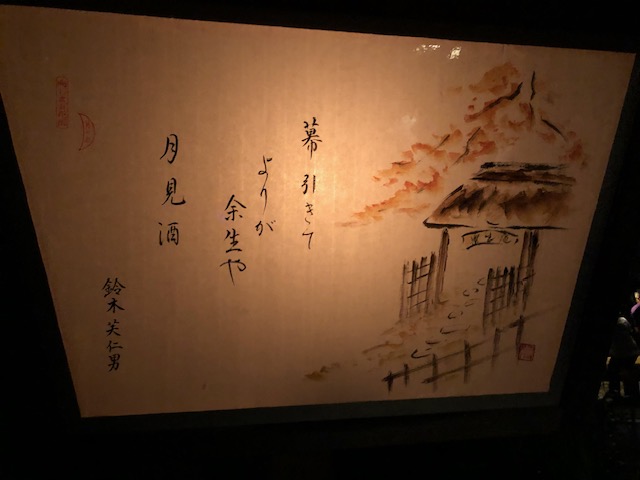 幕引きて
よりが
余生や
月見酒
鈴木笑仁男